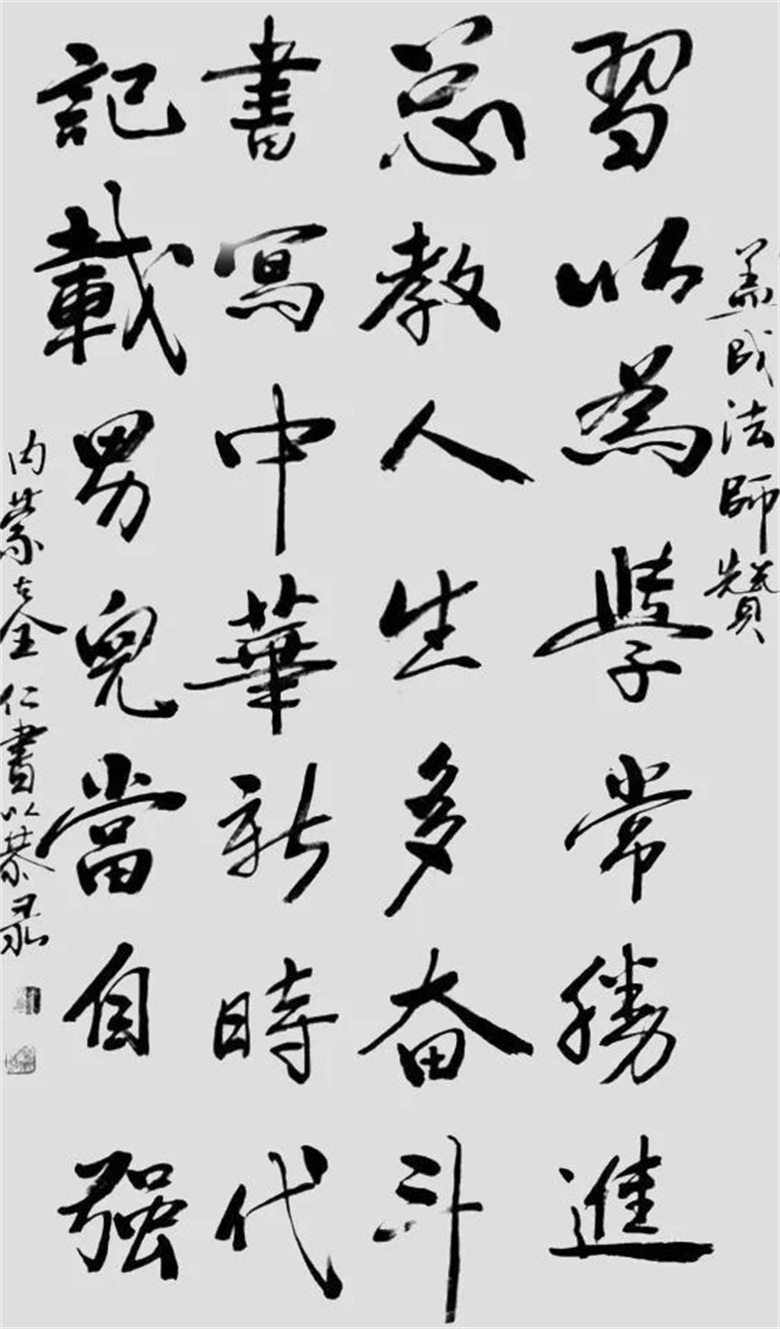 法師贊
習以為學常勝進
总教人生多奋斗
書寫中華新時代
記載男兒當自强
内蒙古全仁書以恭录